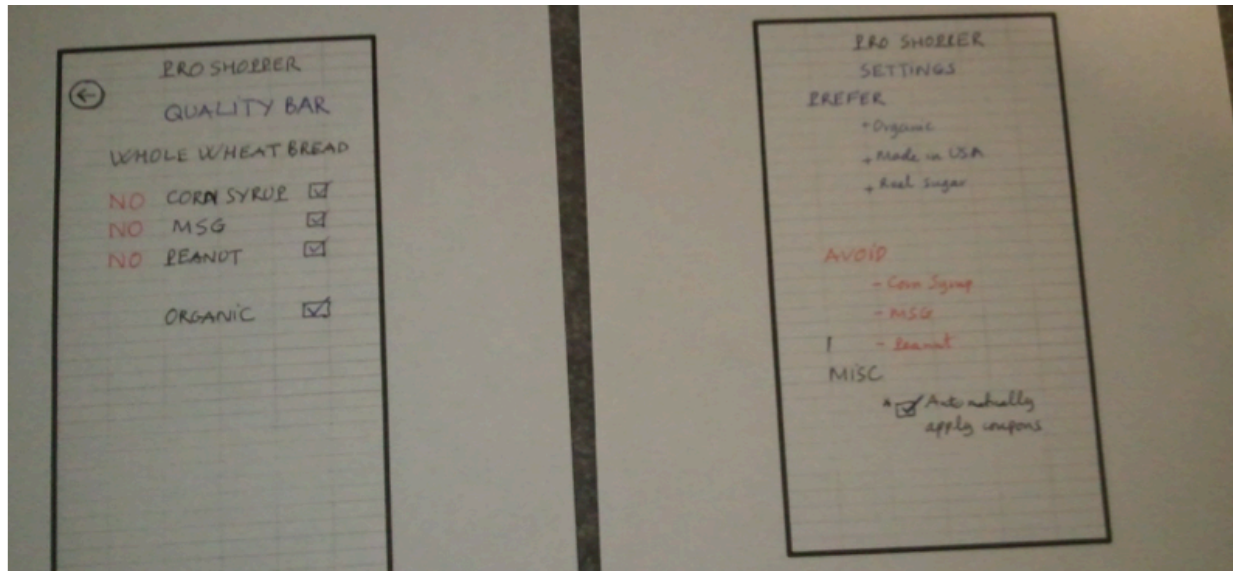 PRO SHOPPER
QUALITY BAR
WHOLE WHEAT BREAD
NO CORN SYRUP
NO MSG
NO PEANUT
ORGANIC
PRO SHOPPER
SETTINGS
PREFER
+ Organic
+ Made in USA
+ Real Sugar
AVOID
- Corn Syrup
- MSG
- Peanut
MISC
* Automatically
apply coupons